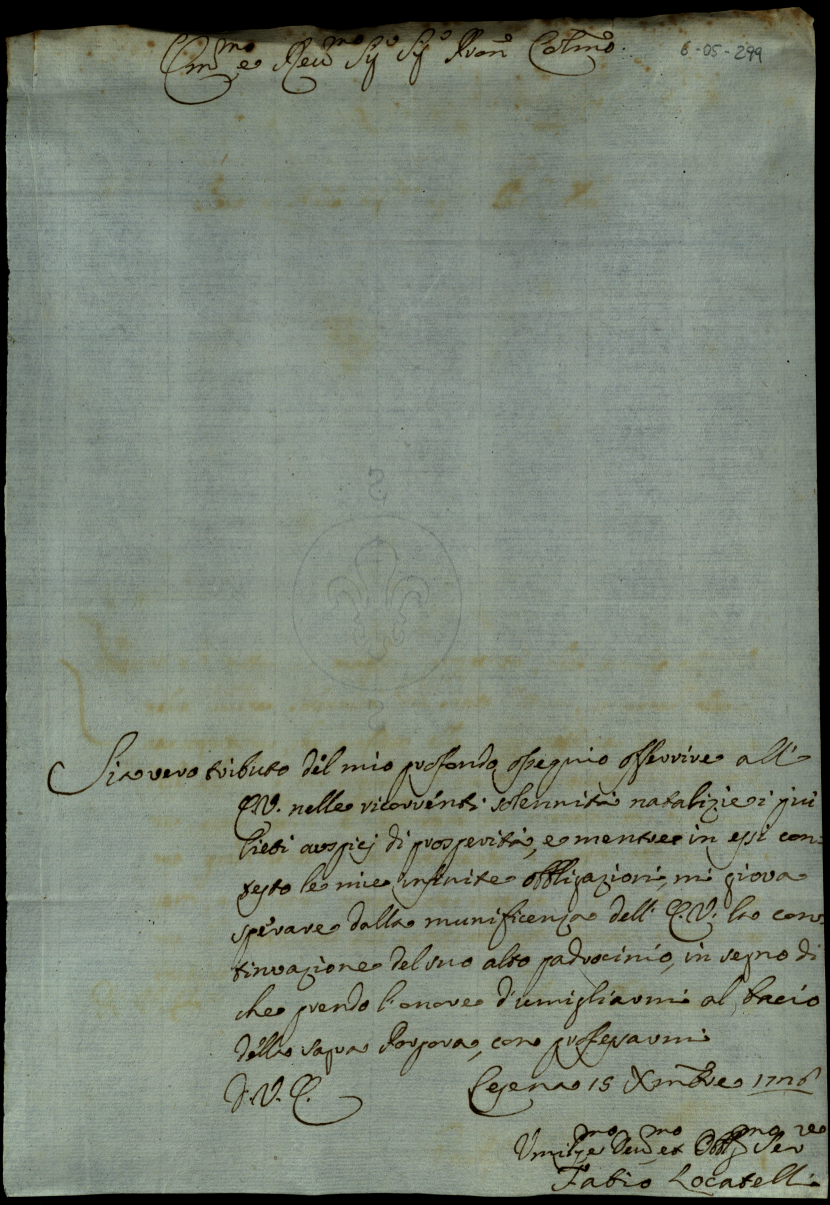 Em.mo e Rev.mo Sig.o Sig.o Pron Colmo.
6-05-299
Sia vero tributo del mio profondo ossequio offerrire all'
E.V. nelle ricorrenti solennità natalizie i più
lieti auspicj di prosperità, e mentre in essi con=
testo le mie infinite obbligazioni, mi giova
sperare dalla munificenza dell' E.V. la con=
tinuazione del suo alto padrocinio, in segno di
che prendo l'onore d'umigliarmi al bacio
della sagra Porpora, con professarmi
D. V. E. Cesena 15 Xmbre 1726
Umil.mo Dev.mo et Obb.mo Ser.re
Fabio Locatelli